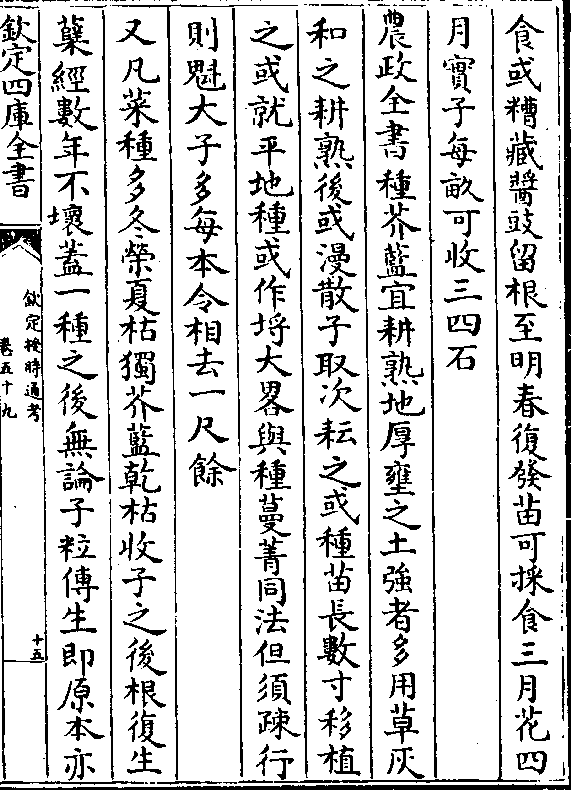 食或糟藏醬豉留根至明春復發苗可採食三月花四
月實子每畝可收三四石
農政全書種芥藍宜耕熟地厚壅之土強者多用草灰
和之耕熟後或漫散子取次耘之或種苗長數寸移植
之或就平地種或作埒大畧與種蔓菁同法但須疎行
則魁大子多每本令相去一尺餘
又凡菜種多冬榮夏枯獨芥藍乾枯收子之後根復生
蘖經數年不壞蓋一種之後無論子粒傳生即原本亦
欽定四庫全書
欽定授時通考
卷五十九
十五